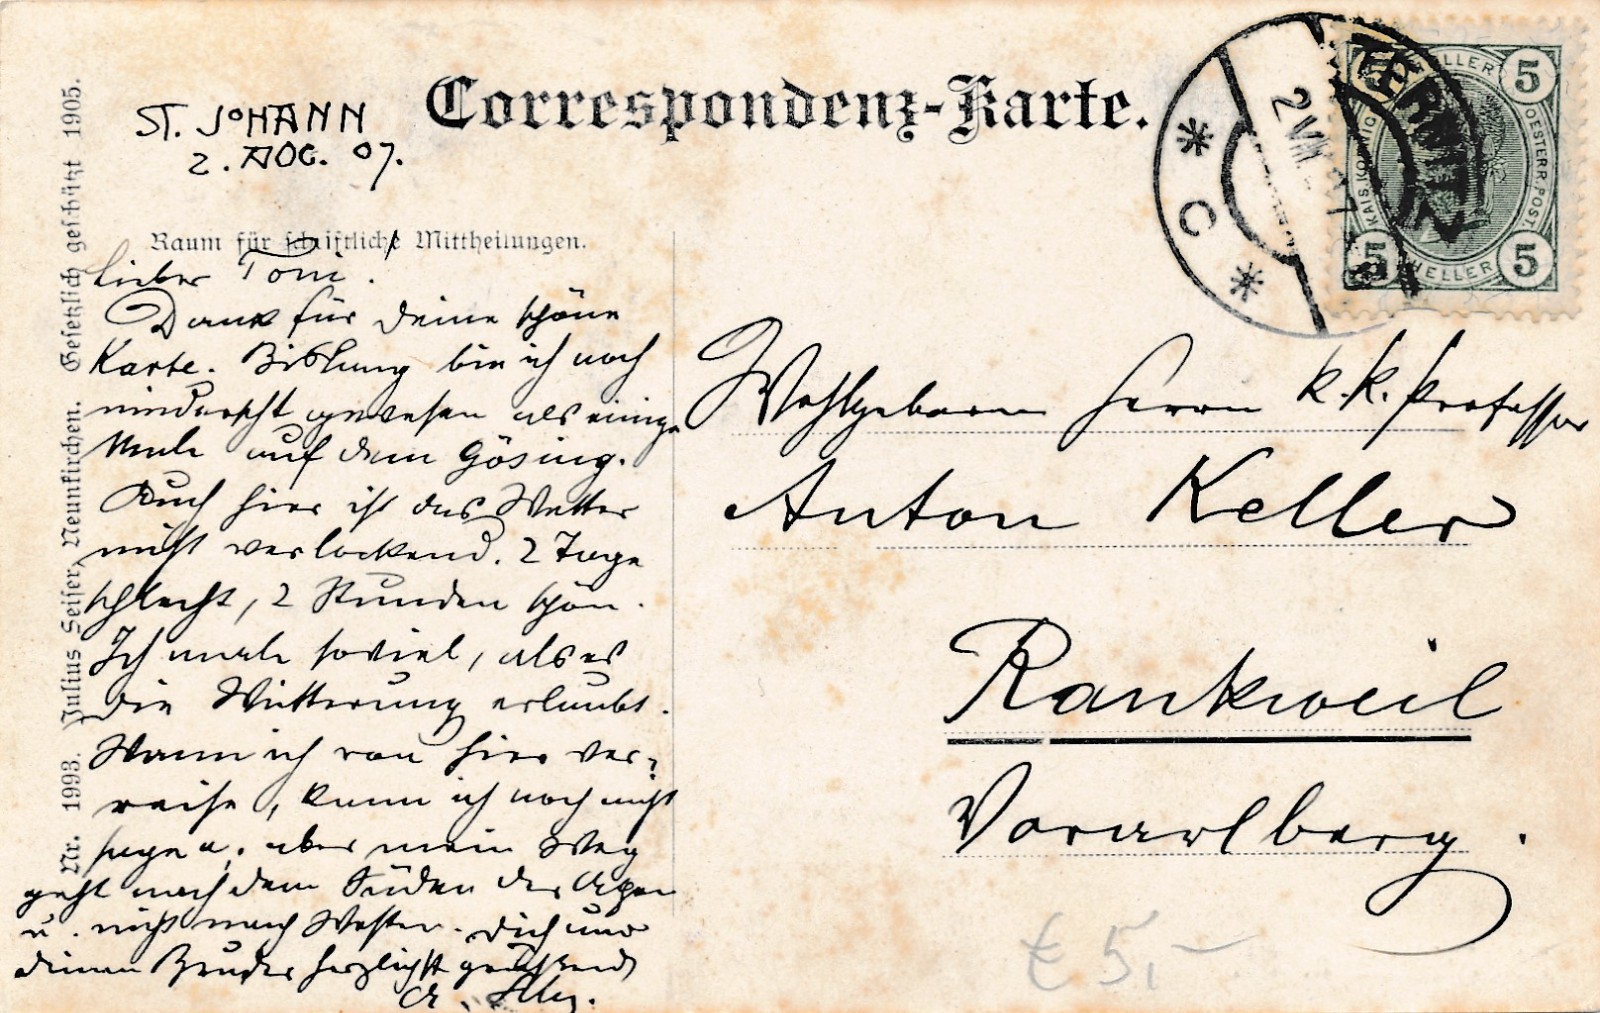 Correspondenz-Karte.
ST. JOHANN
2. AUG. 07.
Raum für schriftliche Mittheilungen.
Nr. 1993. Julius Seiser, Neunkirchen. Gesetzlich geschützt 1905.
Lieber Toni.
Dank für deine schöne
Karte. Bishlang bin ich noch
nirgends gewesen als einige
Male auf dem Gösing.
Auch hier ist das Wetter
nicht verlockend. 2 Tage
schlecht, 2 Stunden schön.
Ich male soviel, als es
die Witterung erlaubt.
Wann ich von hier ver-
reise, kann ich noch nicht
sagen, aber mein Weg
geht nach dem Süden der Alpen
u. nicht nach Westen. Dich und
deinen Bruder herzlichst grüßend
5 HELLER 5
KAIS. KÖNIG. OESTERR. POST
5 HELLER 5
TERNITZ
2 VIII 07
* C *
Wohlgeboren Herrn k. k. Professor
Anton Keller
Rankweil
Vorarlberg.
€ 5,-